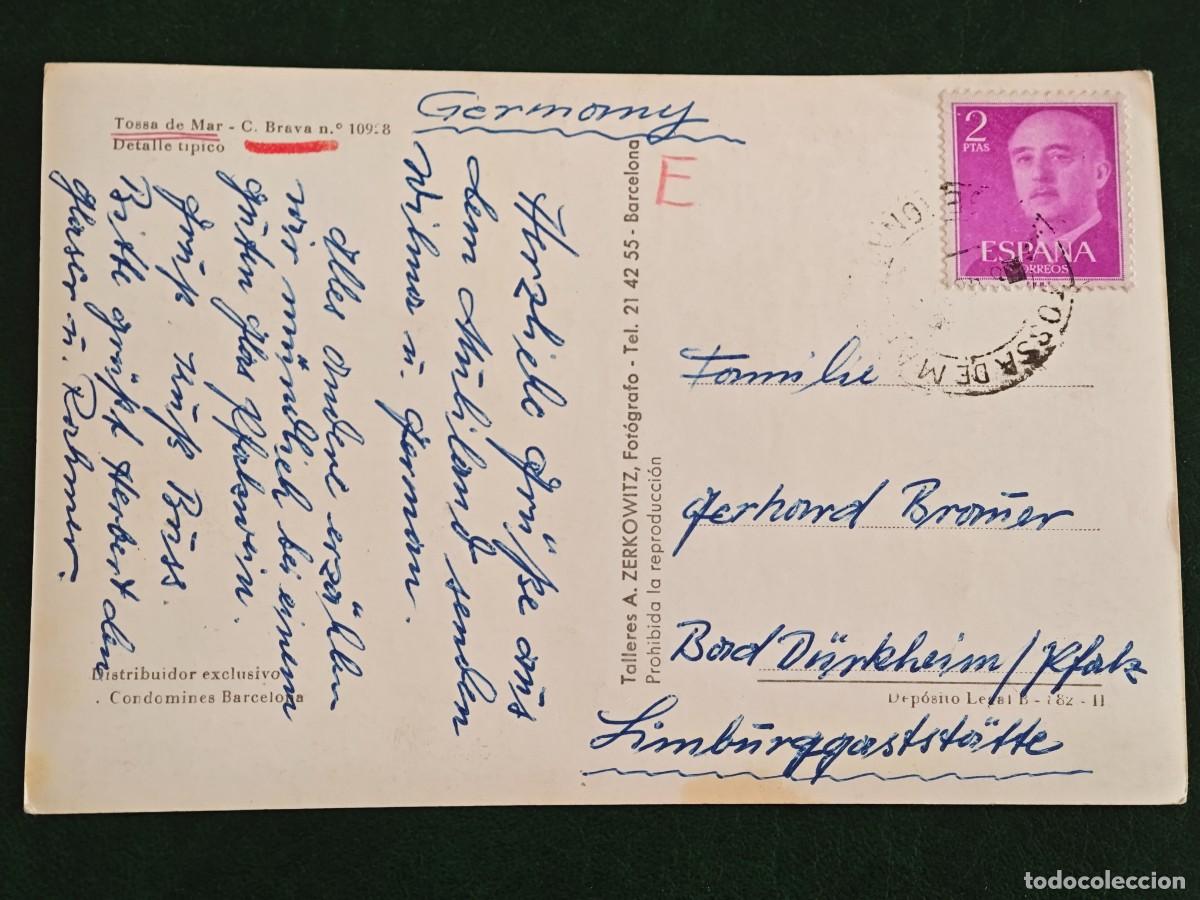 Tossa de Mar - C. Brava n.º 10928
Detalle tipico
Germany
E
2
PTAS
ESPAÑA
CORREOS
TOSSA DE MAR
Herzliche Grüße aus
dem Urlaub senden
Wilma u. German.
Alles andere erzählen
wir mündlich bei einem
guten Glas Pfalzwein.
Gruß
Bitte grüßt Herbert den
Glaser u.
Talleres A. ZERKOWITZ, Fotógrafo - Tel. 21 42 55 - Barcelona
Prohibida la reproducción
Familie
Gerhard Brauer
Bad Dürkheim / Pfalz
Limburggaststätte
Distribuidor exclusivo
. Condomines Barcelona
Depósito Legal B - 782 - II
todocoleccion